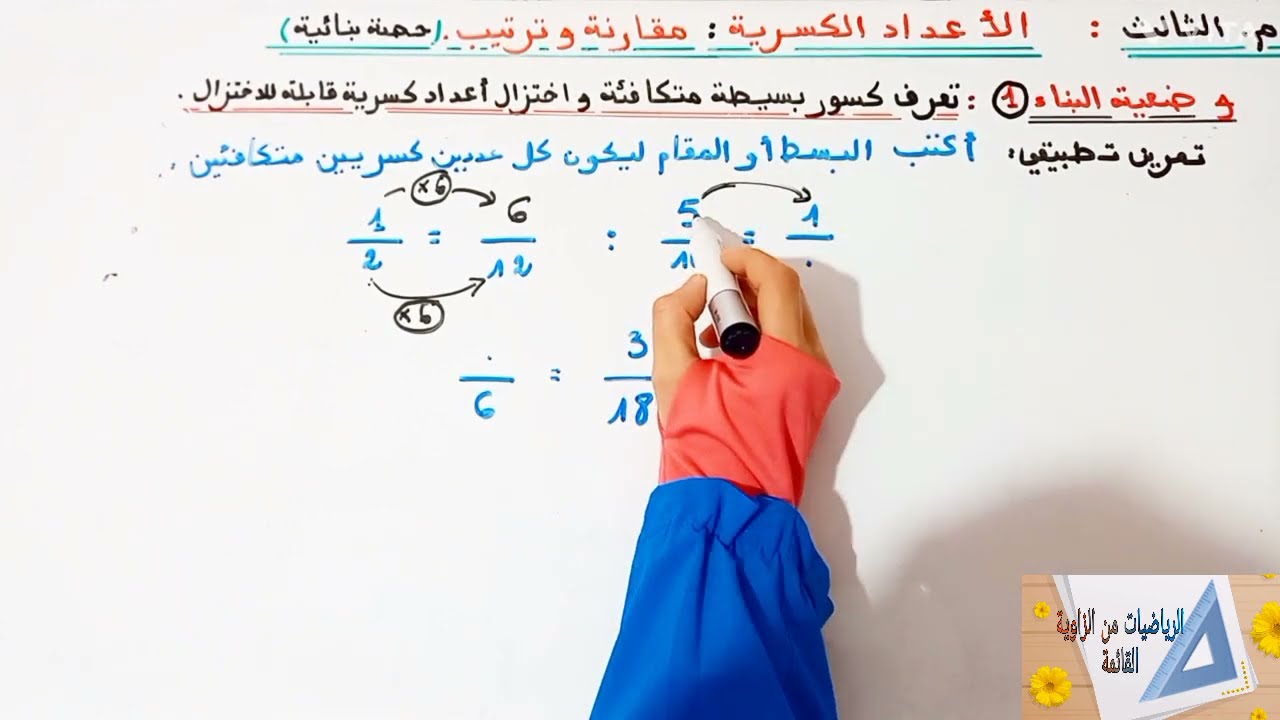 م. الثالث : الأعداد الكسرية : مقارنة و ترتيب. (حصة بنائية)
وضعية البناء 1 : تعرف كسور بسيطة متكافئة و اختزال أعداد كسرية قابلة للاختزال .
تمرين تطبيقي: أكتب البسط أو المقام ليكون كل عددين كسريين متكافئين .
×6
1/2 = 6/12 : 5/1 = 1/.
×6
./6 = 3/18
الرياضيات من الزاوية
القائمة